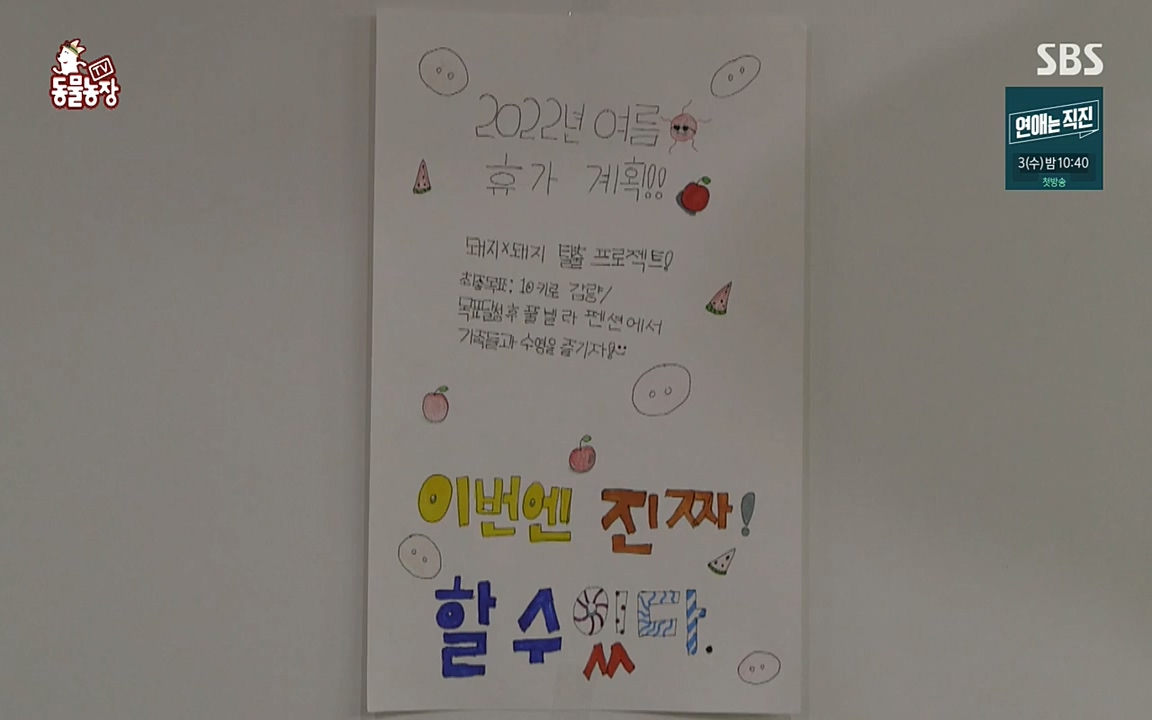 TV
동물농장
SBS
연애는 직진
3(수) 밤 10:40
첫방송
2022년 여름
휴가 계획!!
돼지×돼지 탈출 프로젝트!
최종목표: 10키로 감량/
목표달성 후 풀빌라 펜션에서
가족들과 수영을 즐기자!
이번엔 진짜!
할 수 있다.